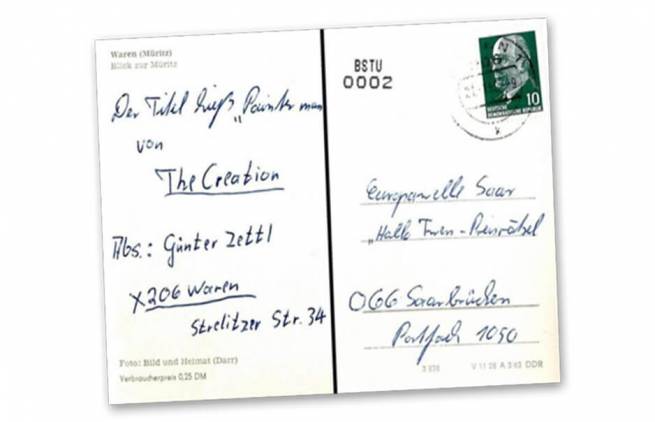 Waren (Müritz)
Blick zur Müritz
Der Titel hieß „Painter man
von
The Creation
Abs.: Günter Zettl
X206 Waren
Strelitzer Str. 34
Foto: Bild und Heimat (Darr)
Verbraucherpreis 0,25 DM
BSTU
0002
10
DEUTSCHE
DEMOKRATISCHE REPUBLIK
Europawelle Saar
„Hallo Twen -
066 Saarbrücken
Postfach 1050
V 11 28 A 3 63 DDR